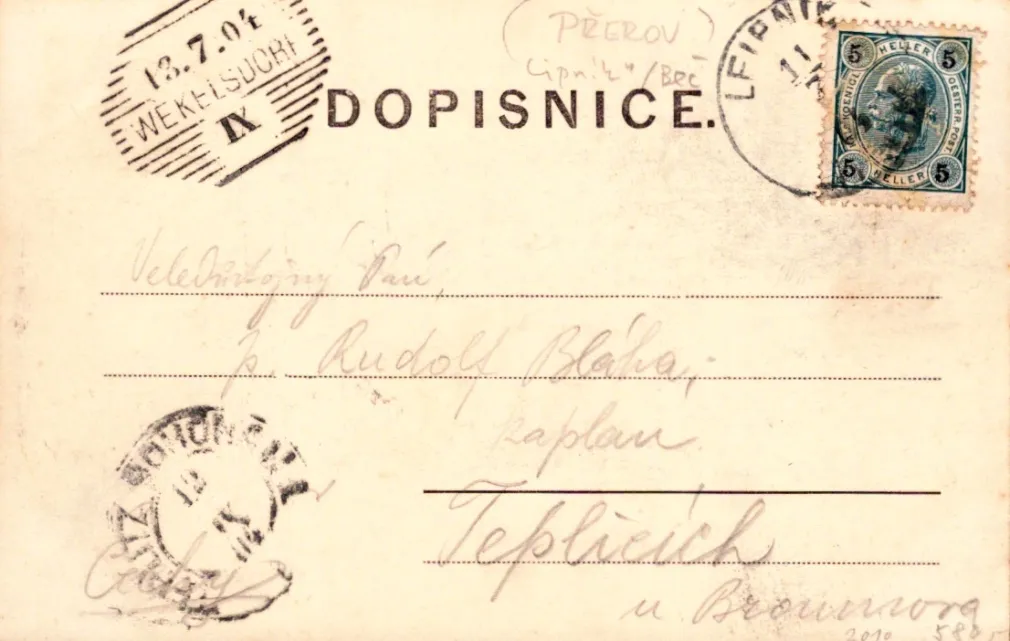 13.7.04
WEKELSDORF
IX
(PŘEROV)
Lipník"/Beč
DOPISNICE.
LEIPNIK
11
5 HELLER 5
OESTERR. POST
5 HELLER 5
Veledůstojný Pan,
p. Rudolf Bláha,
kaplan
Teplicích
u Broumova
Čechy
12
IX
2010